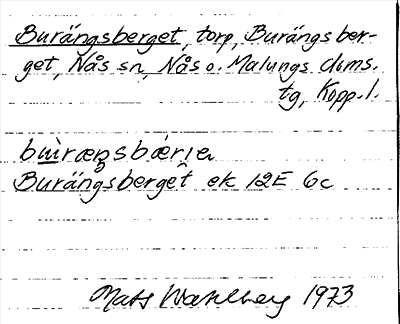 Burängsberget, torp, Burängsber-
get, Nås sn, Nås o. Malungs doms.
tg, Kopp. l.
Burängsberget ek 12E 6c
Mats Wahlberg 1973